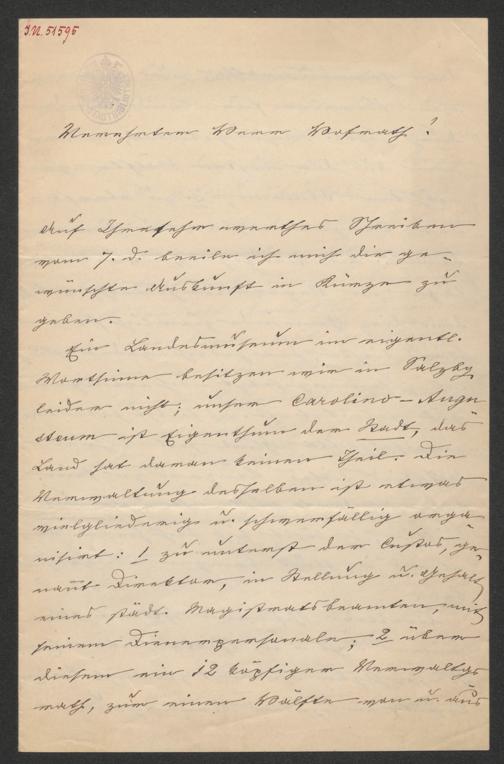 J.N. 51595
Verehrtester Herr Hofrath!
Auf Ihr sehr werthes Schreiben
vom 7. d. beeile ich mich die ge-
wünschte Auskunft in Kürze zu
geben.
Ein Landesmuseum im eigentl.
Wortsinne besitzen wir in Salzbg
leider nicht; unser Carolino-Augu
steum ist Eigenthum der Stadt, das
Land hat daran keinen Theil. Die
Verwaltung desselben ist etwas
vielgliederig u. schwerfällig orga
nisirt: 1 zu unterst der Custos, ge
nannt Direktor, in Stellung u. Gehalt
eines städt. Magistratsbeamten, mit
seinem Dienerpersonale; 2 über
diesem ein 12 köpfiger Verwaltgs
rath, zur einen Hälfte von u. aus